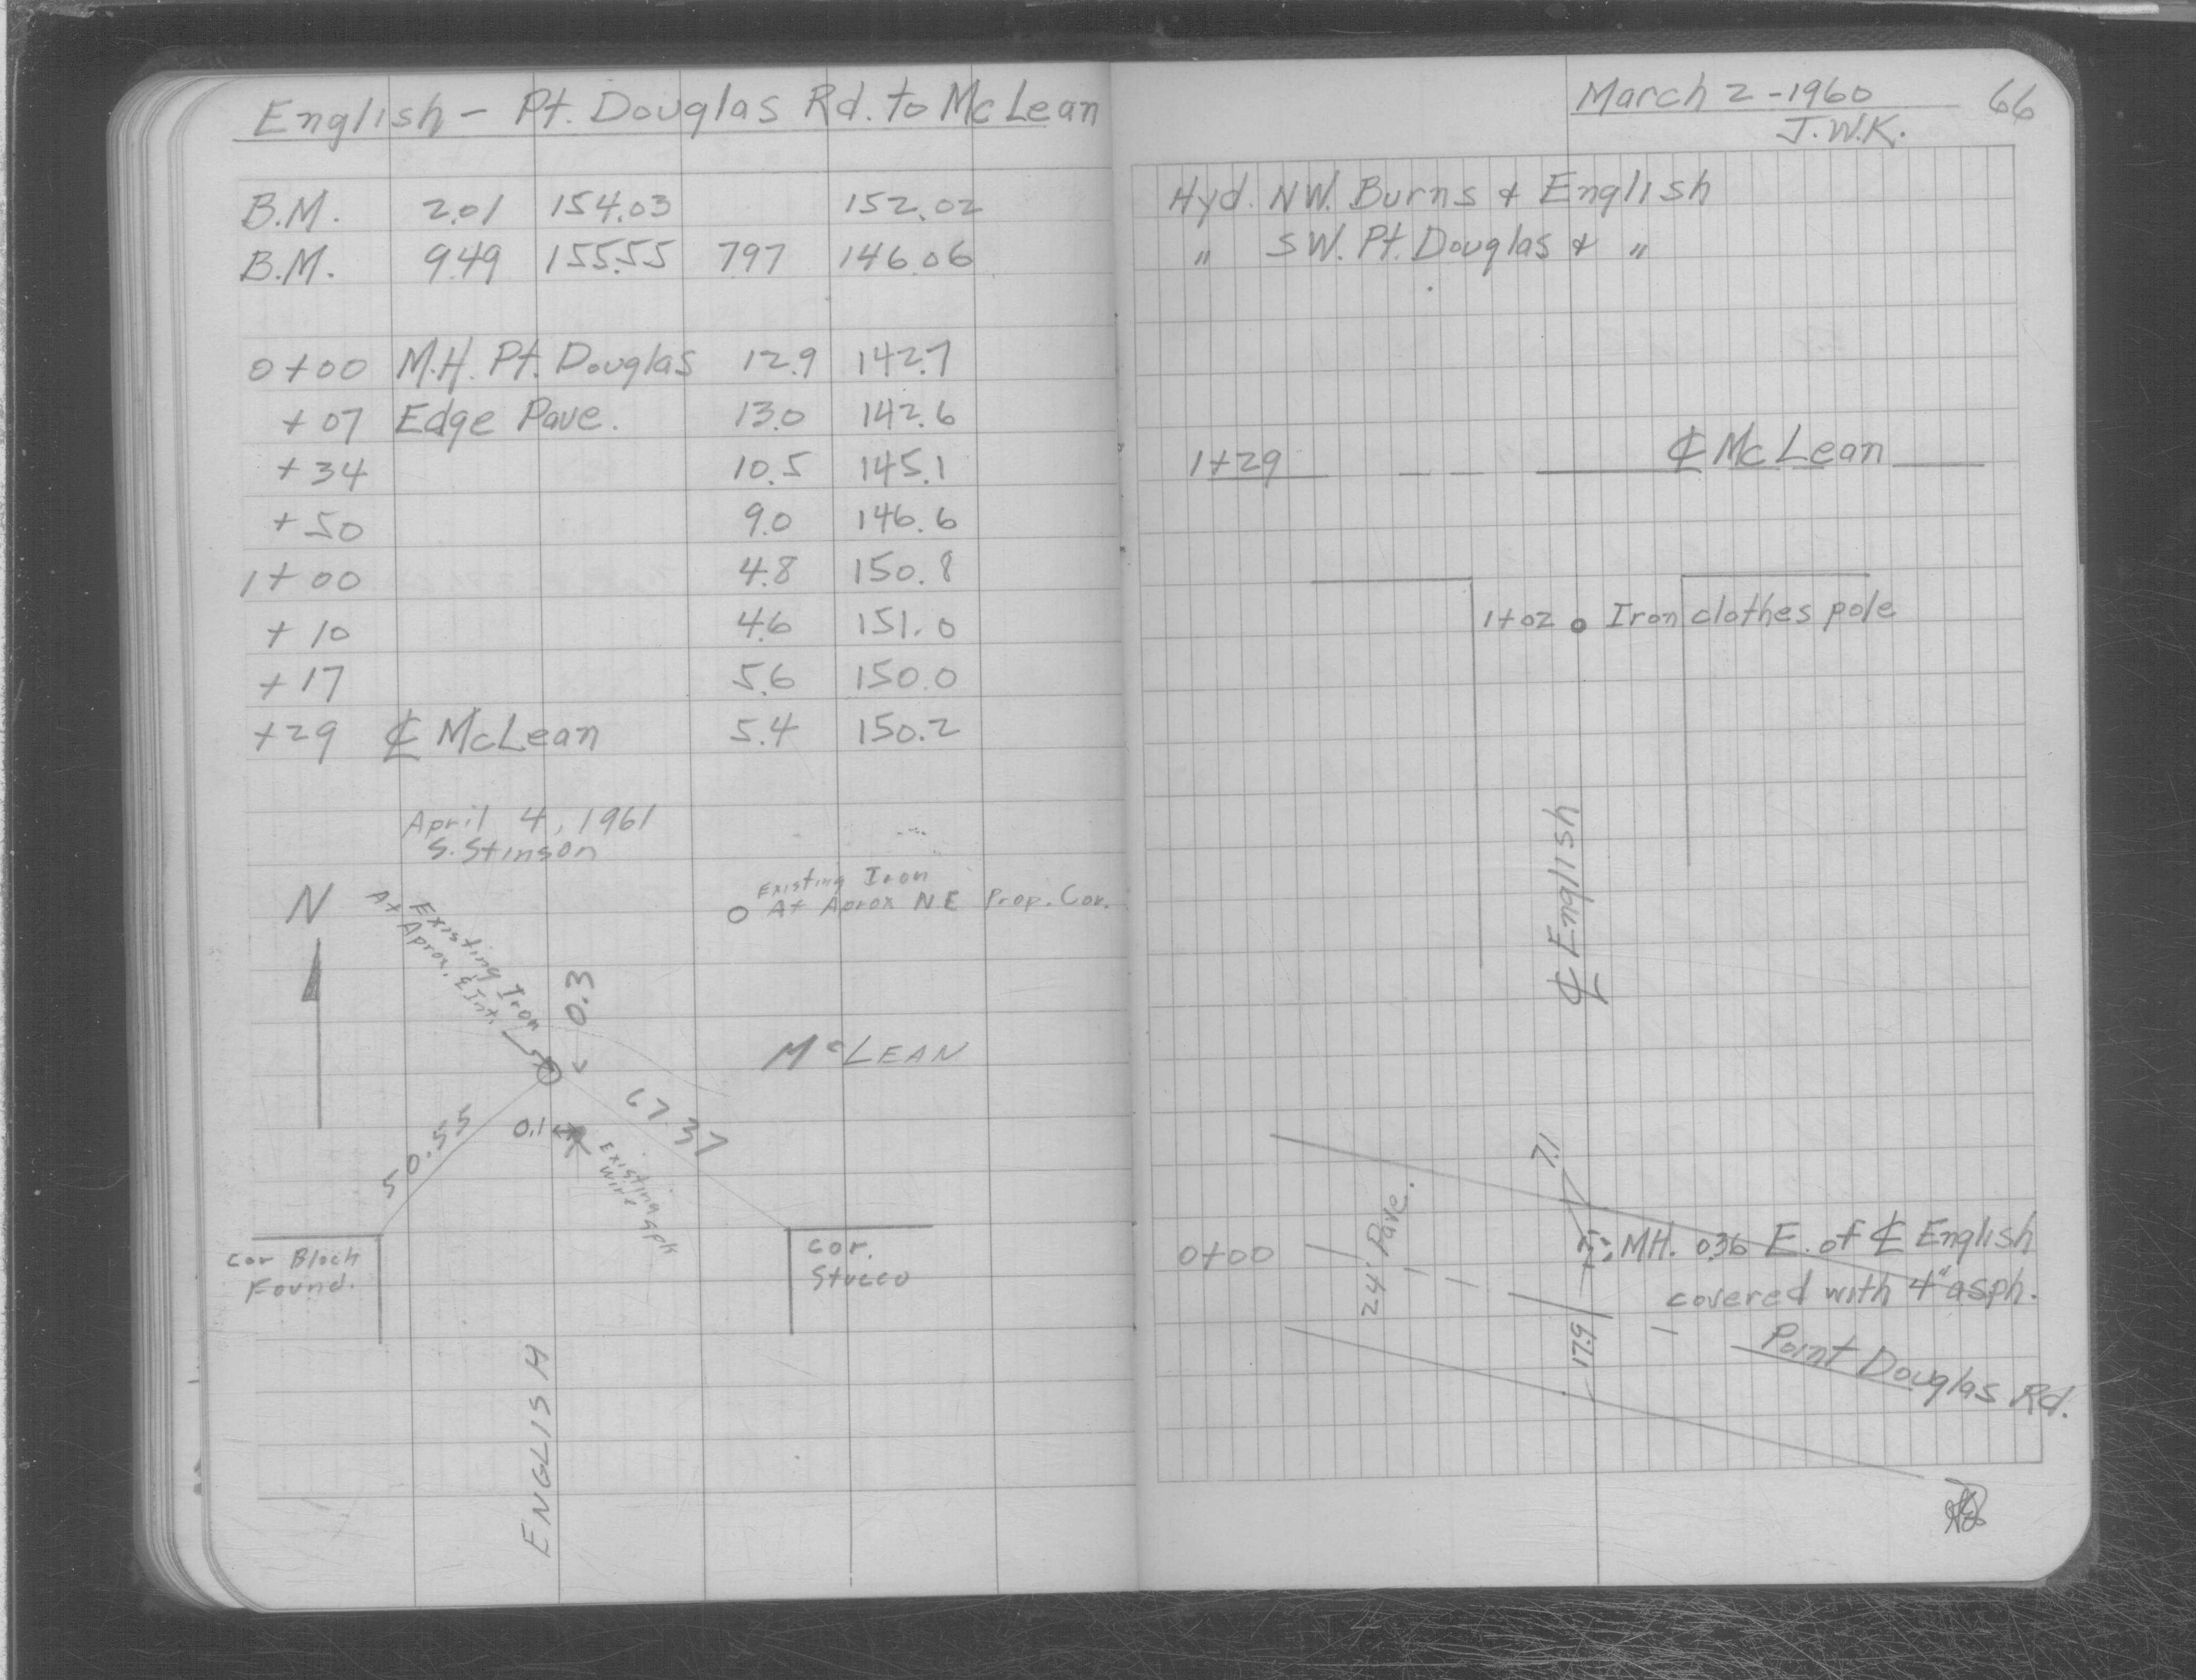 English - Pt. Douglas Rd. to McLean
B.M. 2.01 154.03 152.02
B.M. 9.49 155.55 7.97 146.06
0+00 M.H. Pt. Douglas 12.9 142.7
+07 Edge Pave. 13.0 142.6
+34 10.5 145.1
+50 9.0 146.6
1+00 4.8 150.8
+10 4.6 151.0
+17 5.6 150.0
+29 ℄ McLean 5.4 150.2
April 4, 1961
S. Stinson
N
Existing Iron
At Aprox. ℄ Int.
Existing Iron
At Aprox NE Prop. Cor.
0.3
McLEAN
50.55
67.37
0.1
Existing
Wire Spk
Cor Block
Found.
Cor.
Stucco
ENGLISH
March 2-1960
66
J.W.K.
Hyd. NW. Burns & English
" SW. Pt. Douglas & "
1+29 ℄ McLean
1+02 Iron clothes pole
℄ English
7.1
24' Pave.
0+00 MH. 0.36 E. of ℄ English
covered with 4" asph.
17.9
Point Douglas Rd.